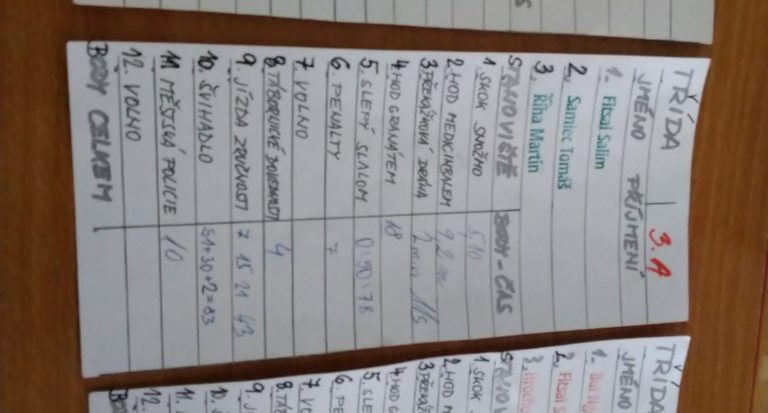 TŘÍDA 3.A
JMÉNO PŘÍJMENÍ
1. Fitsai Salim
2. Samiec Tomáš
3. Říha Martin
STANOVIŠTĚ BODY - ČAS
1. SKOK SNOŽMO 5,10
2. HOD MEDICINBALEM 9,2 m
3. PŘEKÁŽKOVÁ DRÁHA 1 min 11s
4. HOD GRANÁTEM 18
5. SLEPÝ SLALOM 0:50:78
6. PENALTY 7
7. VOLNO
8. TÁBORNICKÉ DOVEDNOSTI 4
9. JÍZDA ZRUČNOSTI 7 15 21 43
10. ŠVIHADLO 51+30+2=83
11. MĚSTSKÁ POLICIE 10
12. VOLNO
BODY CELKEM
TŘÍDA
JMÉNO
1. Bui
2. Fitsai S
3.
STANOV
1. SKOK
2. HOD M
3. PŘEKÁŽ
4. HOD G
5. SLE
6. PE
7. VO
8. TÁ
9. J
10.
11.
12.
BO